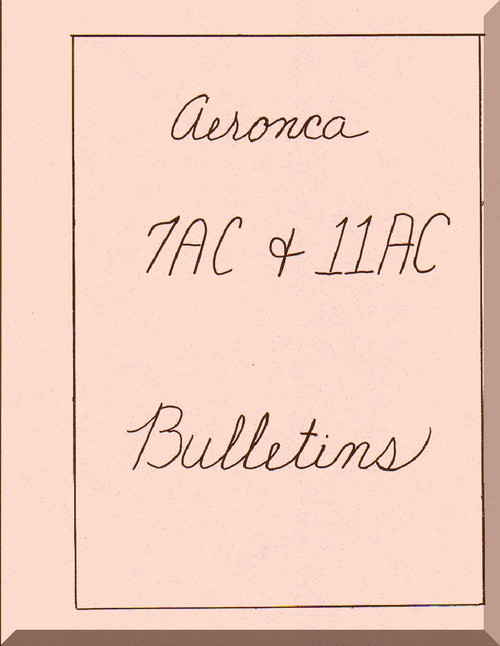 Aeronca
7AC & 11AC
Bulletins